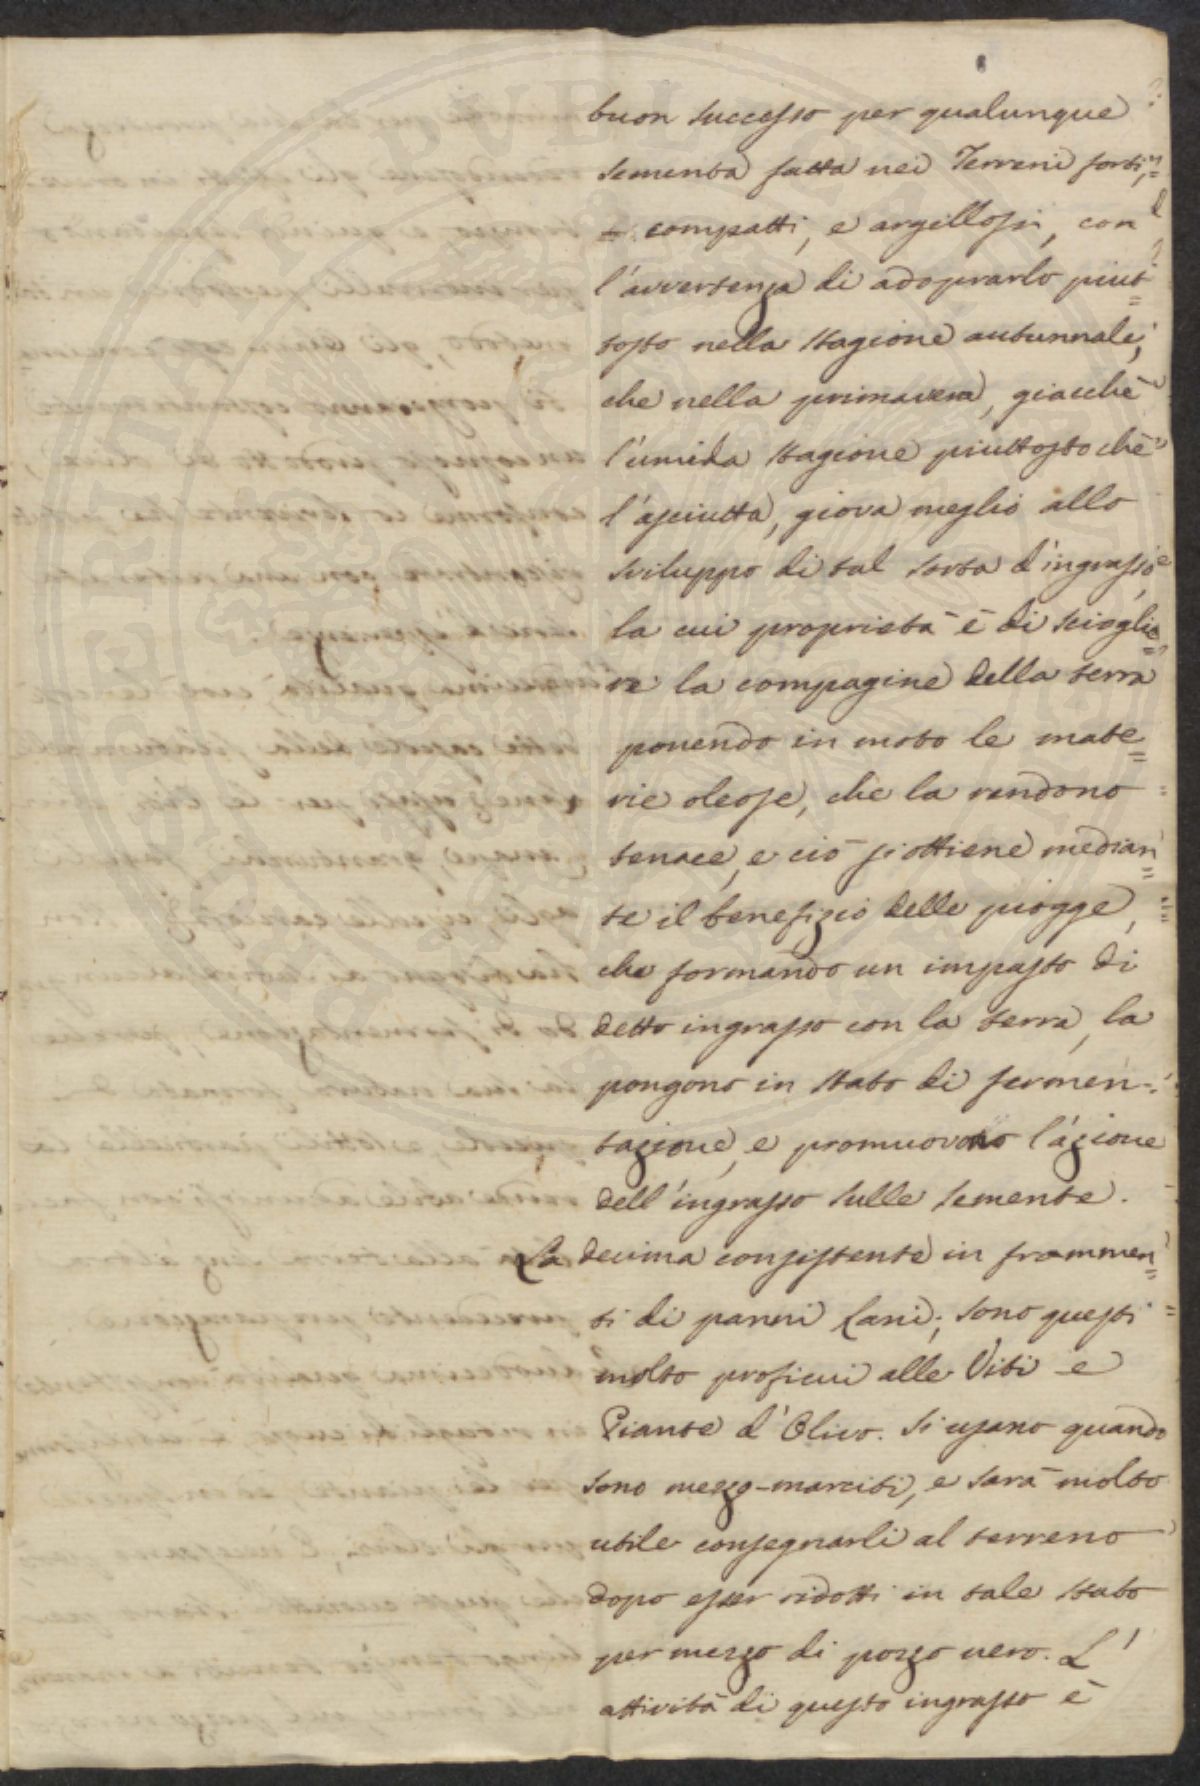 buon successo per qualunque
sementa fatta nei Terreni forti,=
= compatti, e argillosi, con
l'avvertenza di adoprarlo piut=
tosto nella stagione autunnale,
che nella primavera, giacchè
l'umida stagione piuttosto che
l'asciutta, giova meglio allo
sviluppo di tal sorta d'ingrasso
la cui proprietà è di scioglie=
re la compagine della terra
ponendo in moto le mate=
rie oleose, che la rendono
tenace, e ciò si ottiene median=
te il benefizio delle piogge,
che formando un impasto di
detto ingrasso con la terra, la
pongono in stato di fermen=
tazione, e promuovono l'azione
dell'ingrasso sulle semente.
La decima consistente in frammen=
ti di panni lani; sono questi
molto proficui alle Viti e
Piante d'Olivo. Si usano quando
sono mezzo-marciti, e sarà molto
utile consegnarli al terreno
dopo esser ridotti in tale stato
per mezzo di pozzo nero. L'
attività di questo ingrasso è